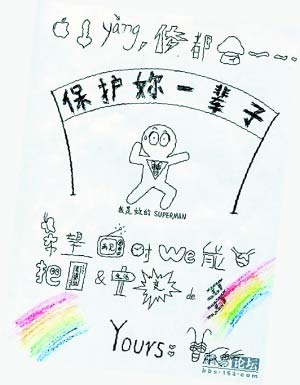 yàng, 都
保护妳一辈子
我是妳的 SUPERMAN
希望 时 We 能
把 & 生活 de
Yours:
论坛
bbs.163.com